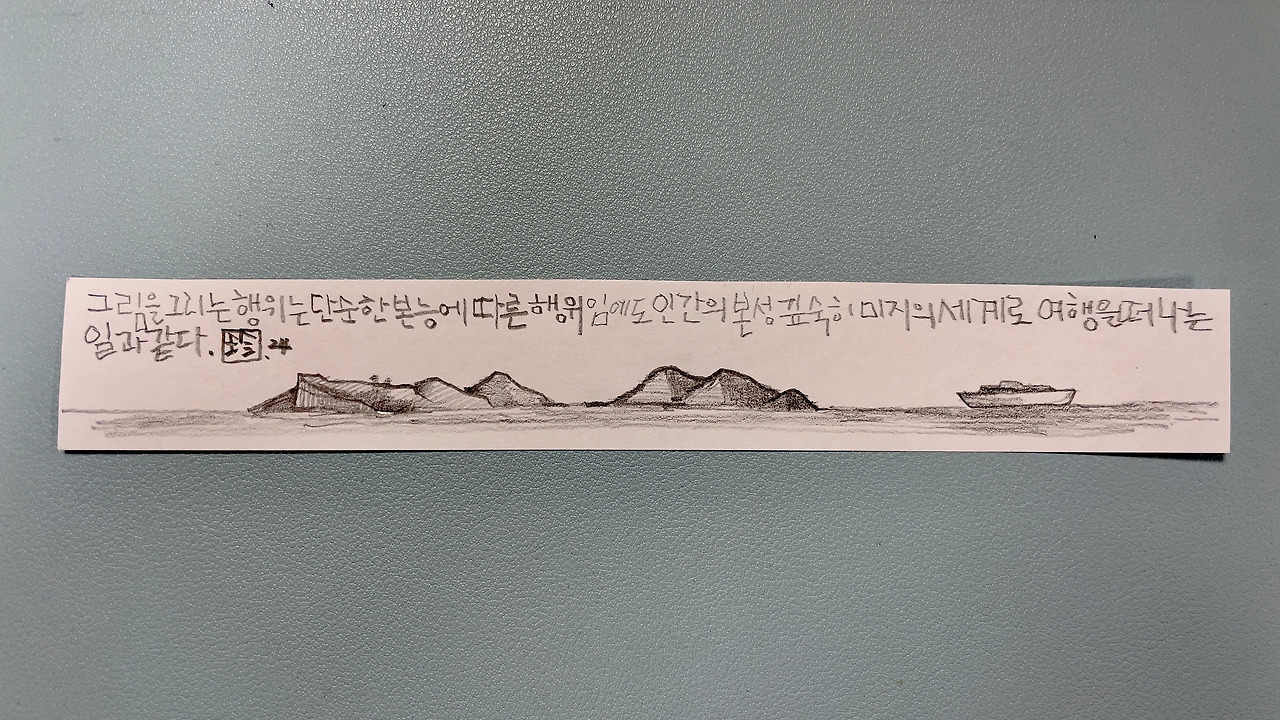 그림을 그리는 행위는 단순한 본능에 따른 행위임에도 인간의 본성 깊숙히 미지의 세계로 여행을 떠나는
일과 같다. .24